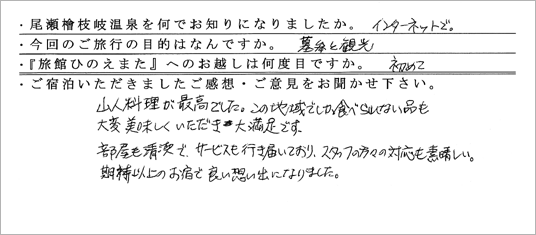 ・尾瀬檜枝岐温泉を何でお知りになりましたか。 インターネットで。
・今回のご旅行の目的はなんですか。 墓参と観光
・『旅館ひのえまた』へのお越しは何度目ですか。 初めて
・ご宿泊いただきましたご感想・ご意見をお聞かせ下さい。
山人料理が最高でした。この地域でしか食べられない品も
大変美味しくいただき大満足です。
部屋も清潔で、サービスも行き届いており、スタッフの方々の対応も素晴しい。
期待以上のお宿で良い想い出になりました。